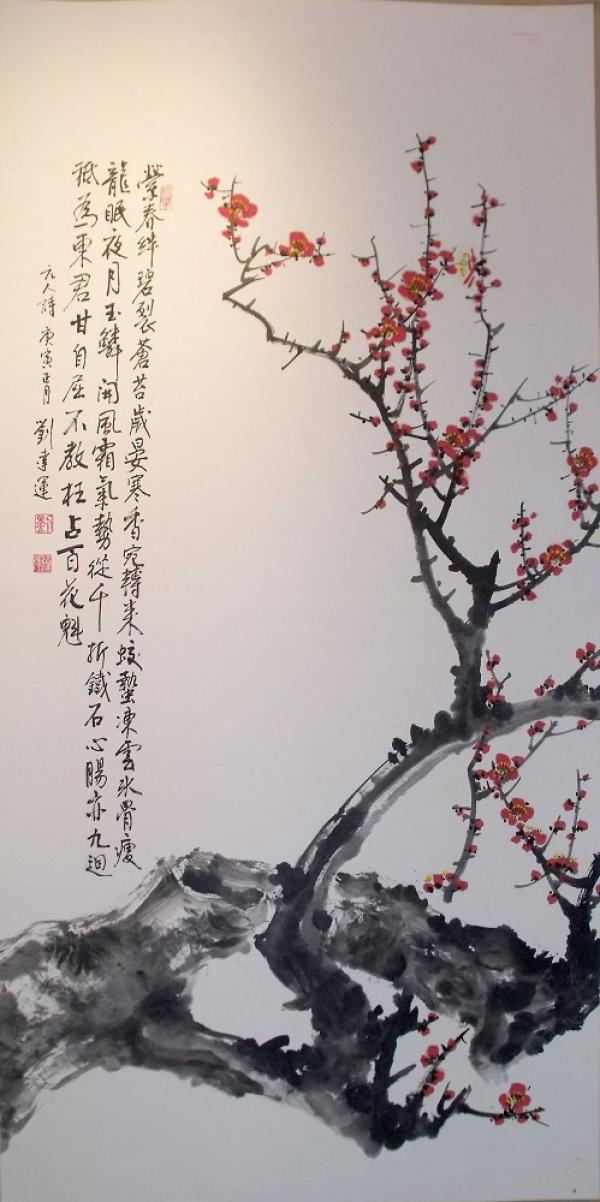 縈春絆碧裂蒼苔歲晏寒香宛轉來蛟蟄凍雲氷骨瘦
龍眠夜月玉鱗開風霜氣勢從千折鐵石心腸亦九迴
祗為東君甘自屈不教枉占百花魁
元人詩 庚寅正月 劉達運